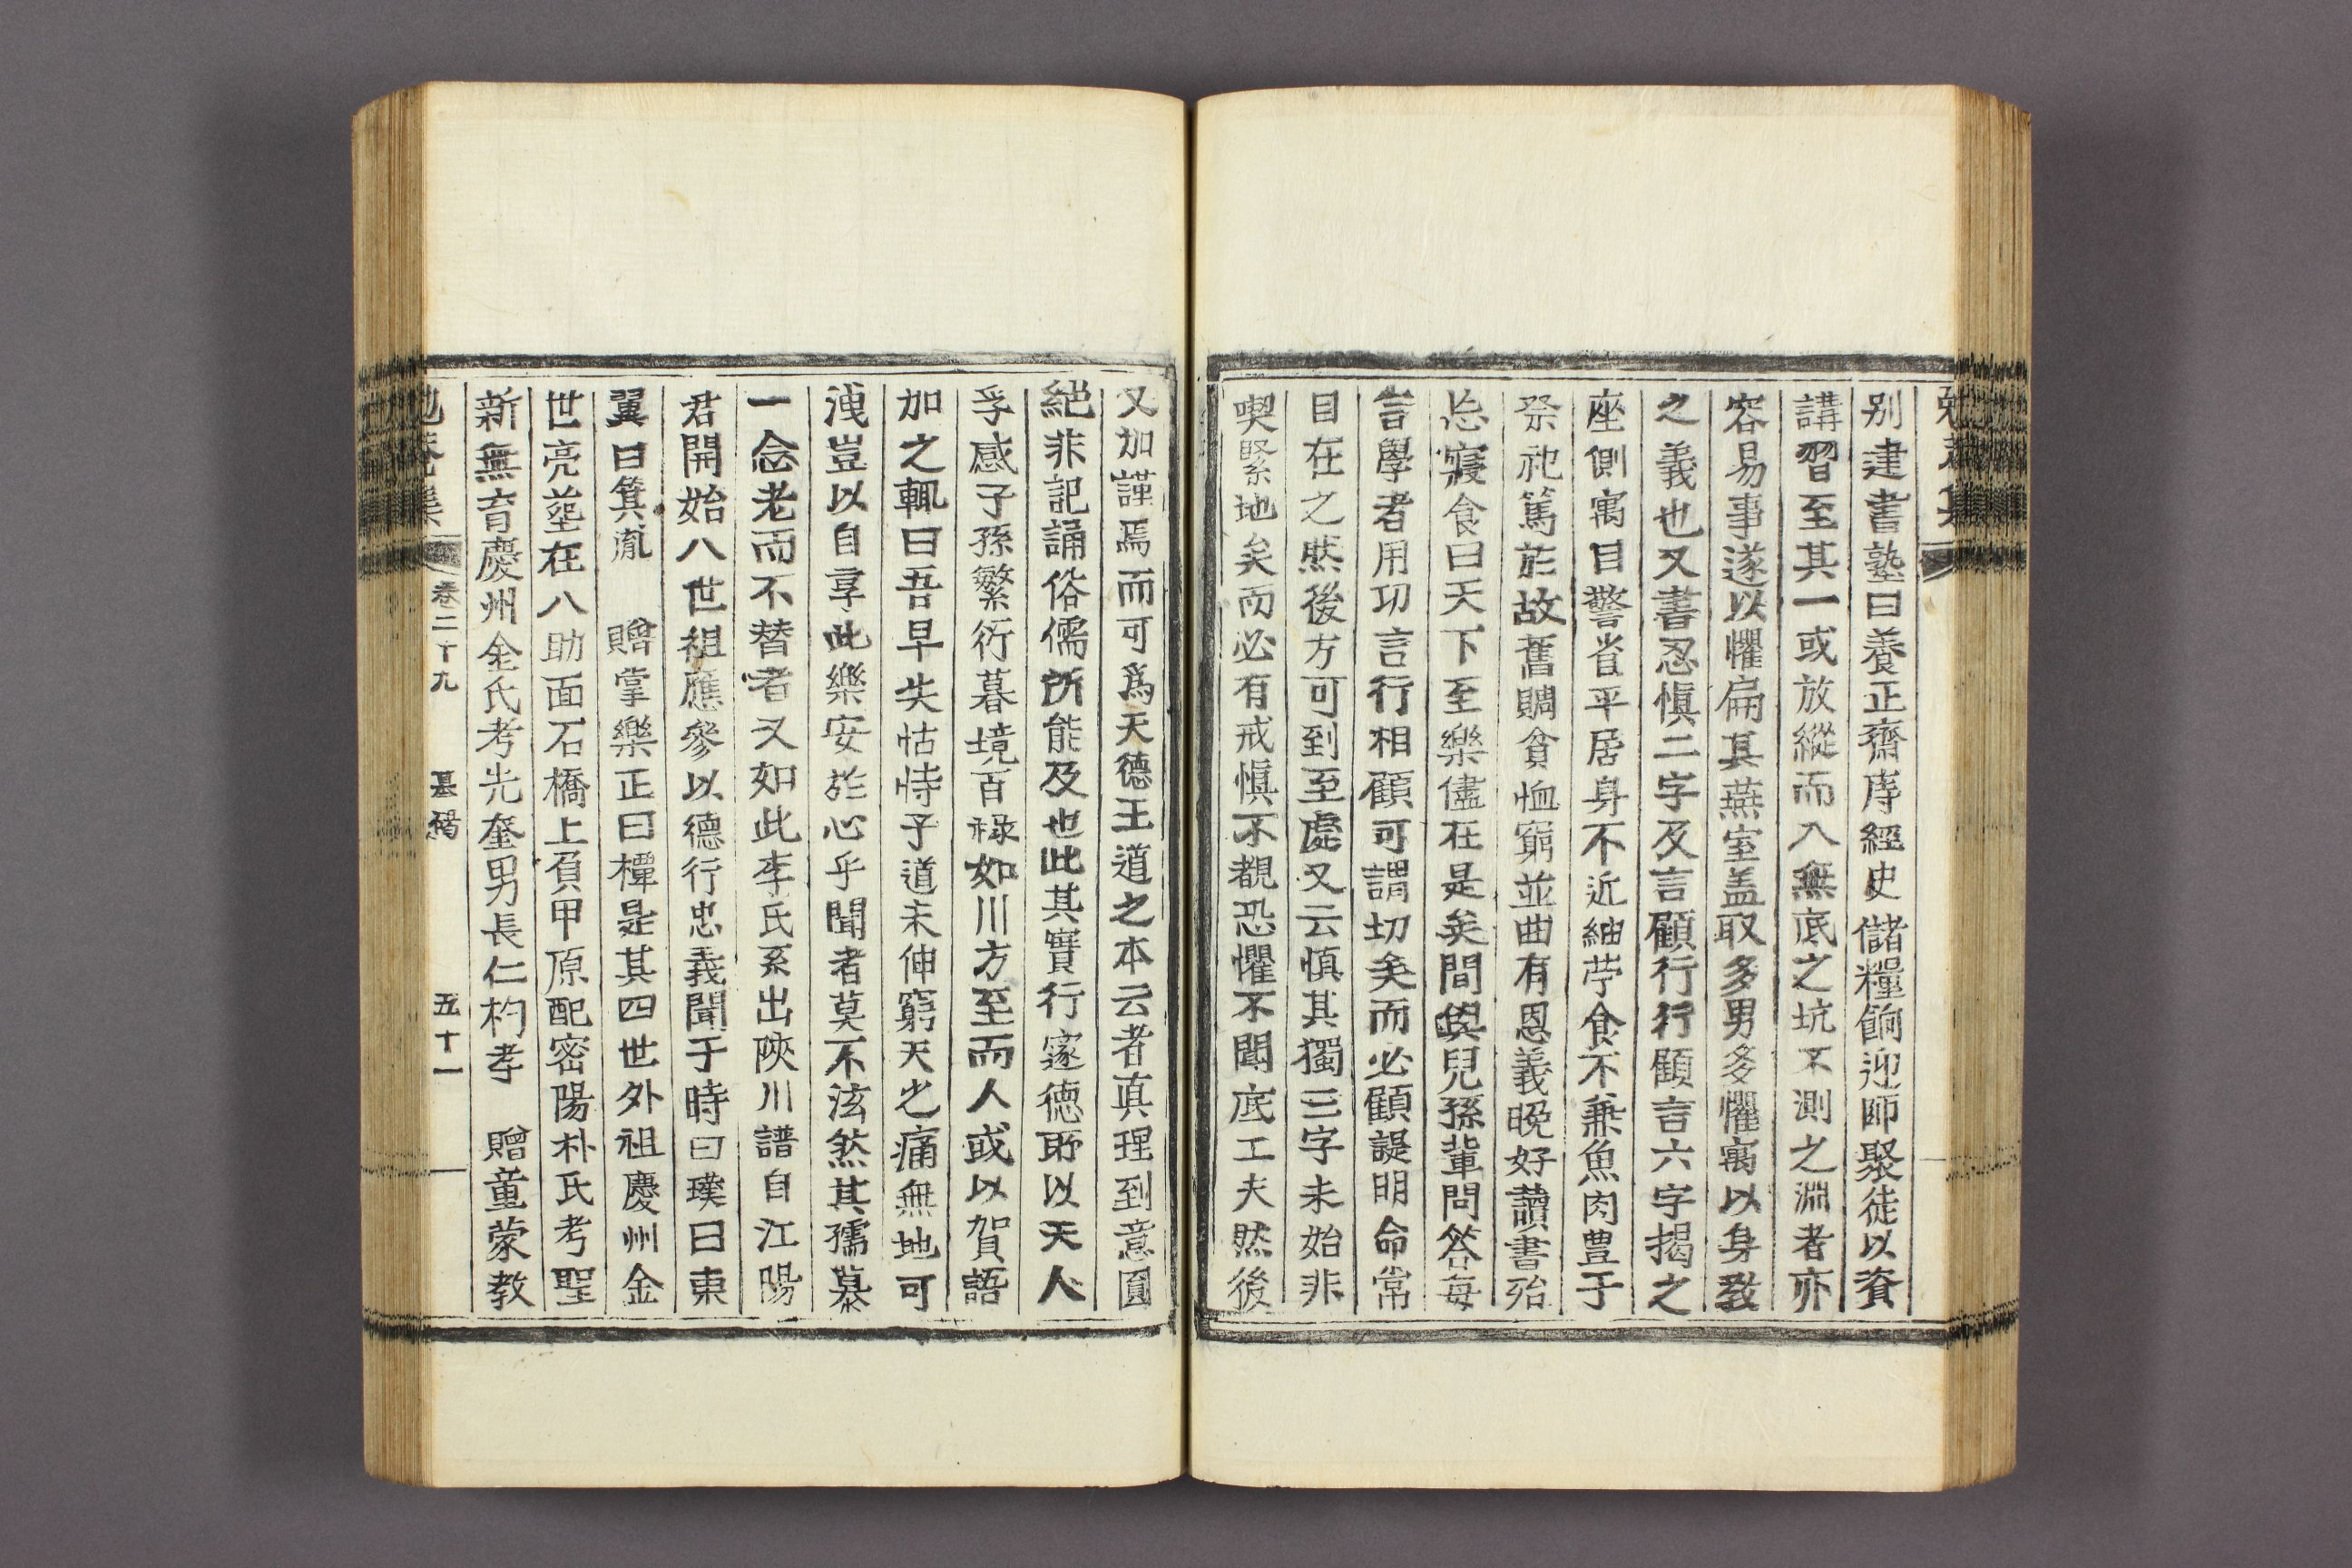 別建書塾曰養正齋庤經史儲糧餉迎師聚徒以資
講習至其一或放縱而入無底之坑不測之淵者亦
容易事遂以懼扁其燕室盖取多男多懼寓以身敎
之義也又書忍愼二字及言顧行行顧言六字揭之
座側寓目警省平居身不近紬苧食不兼魚肉豊于
祭祀篤於故舊賙貧恤窮並曲有恩義晩好讀書殆
忘寢食曰天下至樂儘在是矣間與兒孫輩問答每
言學者用功言行相顧可謂切矣而必顧諟明命常
目在之然後方可到至處又云愼其獨三字未始非
喫緊地矣而必有戒愼不覩恐懼不聞底工夫然後
又加謹焉而可爲天德王道之本云者眞理到意圓
絕非記誦俗儒所能及也此其實行邃德所以天人
孚感子孫繁衍暮境百祿如川方至而人或以賀語
加之輒曰吾早失怙恃子道未伸窮天之痛無地可
洩豈以自享此樂安於心乎聞者莫不泫然其孺慕
一念老而不替者又如此李氏系出陝川譜自江陽
君開始八世祖應參以德行忠義聞于時曰璞曰東
翼曰箕胤 贈掌樂正曰樟是其四世外祖慶州金
世亮塟在八助面石橋上負甲原配密陽朴氏考聖
新無育慶州金氏考光奎男長仁杓孝 贈童蒙敎
卷二十九 墓碣 五十一